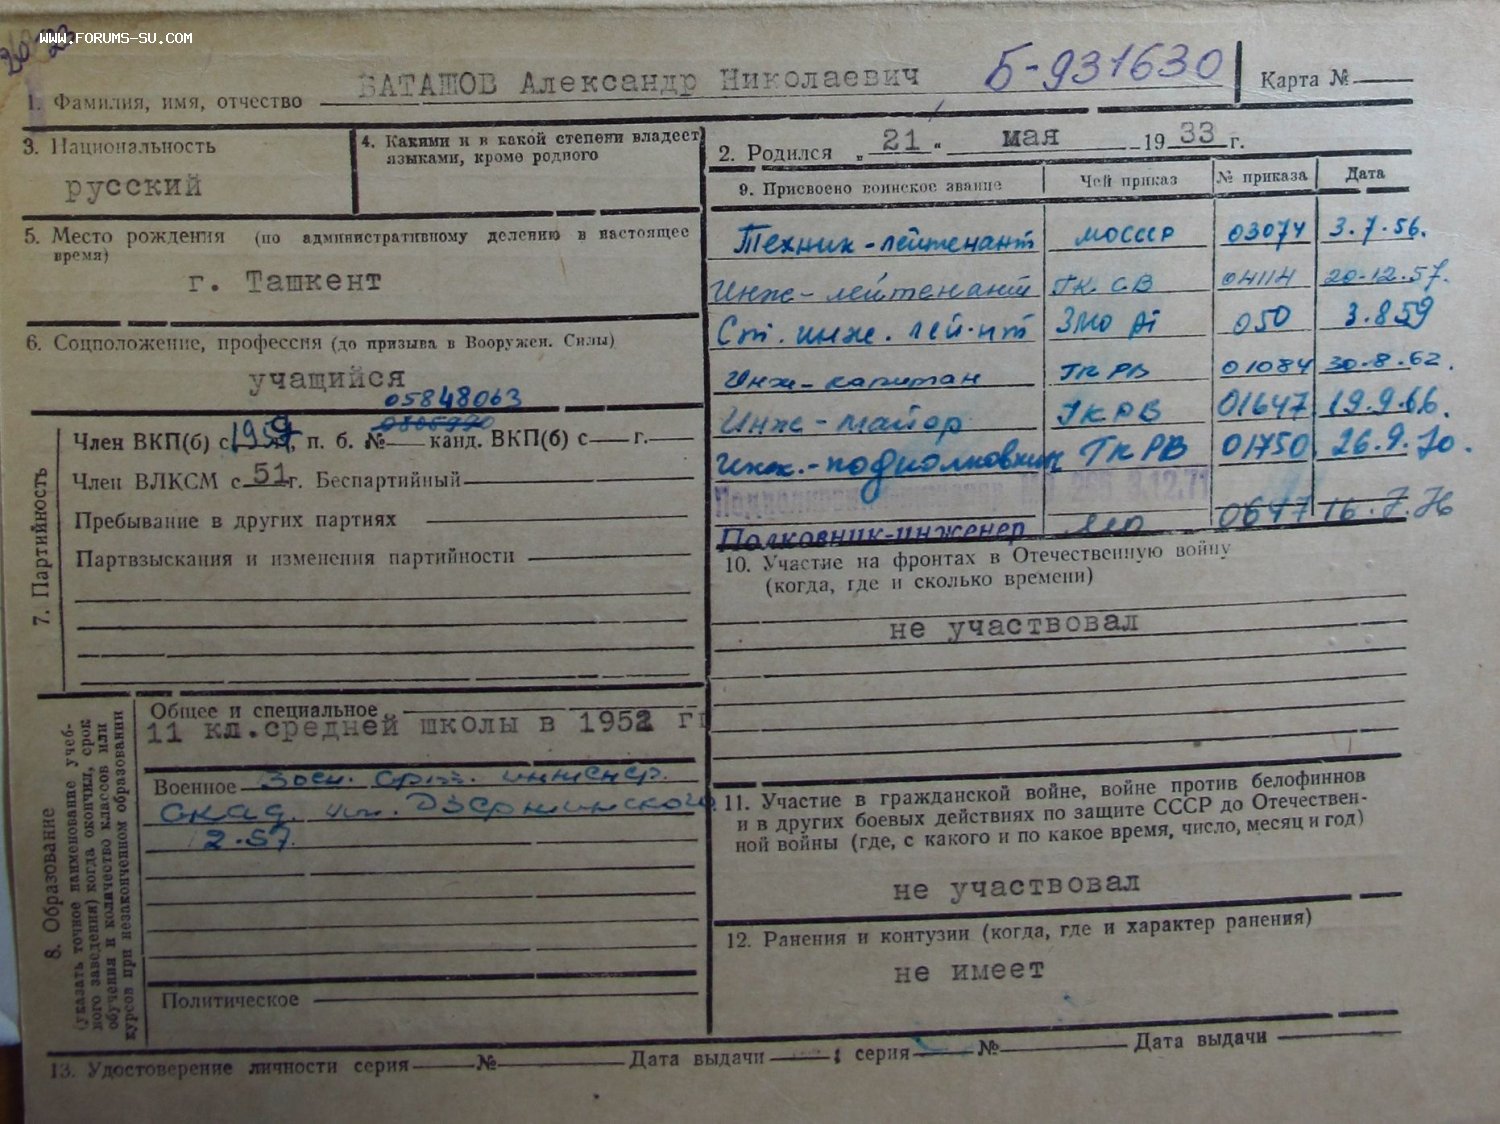 www.forums-su.com
БАТАШОВ Александр Николаевич Б-931630
1. Фамилия, имя, отчество
Карта №
3. Национальность
русский
4. Какими и в какой степени владеет
языками, кроме родного
2. Родился „ 21 “ мая 19 33 г.
5. Место рождения (по административному делению в настоящее
время)
г. Ташкент
6. Соцположение, профессия (до призыва в Вооружен. Силы)
учащийся
05848063
7. Партийность
Член ВКП(б) с 1959, п. б. № канд. ВКП(б) с г.
Член ВЛКСМ с 51 г. Беспартийный
Пребывание в других партиях
Партвзыскания и изменения партийности
8. Образование
(указать точное наименование учеб-
ного заведения) когда окончил, срок
обучения и количество классов или
курсов при незаконченном образовании
Общее и специальное
11 кл.средней школы в 1952 г
Военное Воен. Арт. инженер.
Акад. им. Дзержинского
2.57
Политическое
9. Присвоено воинское звание Чей приказ № приказа Дата
Техник-лейтенант МОССР 03074 3.7.56.
Инж-лейтенант ГК СВ 04114 20.12.57.
Ст. инж. лей-нт ЗМО 050 3.8.59
Инж-капитан ГК РВ 01084 30.8.62.
Инж-майор ГКРВ 01647 19.9.66.
Инж.-подполковник ГКРВ 01750 26.9.70.
Подполковник-инженер МО 265 3.12.71
Полковник-инженер МО 0677 16.7.76
10. Участие на фронтах в Отечественную войну
(когда, где и сколько времени)
не участвовал
11. Участие в гражданской войне, войне против белофиннов
и в других боевых действиях по защите СССР до Отечествен-
ной войны (где, с какого и по какое время, число, месяц и год)
не участвовал
12. Ранения и контузии (когда, где и характер ранения)
не имеет
13. Удостоверение личности серия № Дата выдачи ; серия № Дата выдачи